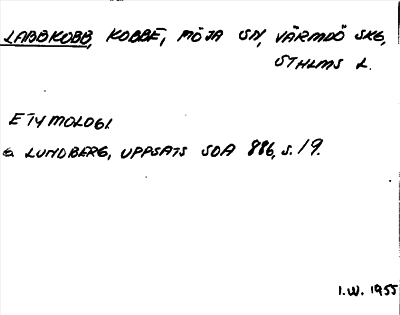 LABBKOBB, KOBBE, MÖJA SN, VÄRMDÖ SKG,
STHLMS L.
ETYMOLOGI
G LUNDBERG, UPPSATS SOA 886, S. 19.
I.W. 1955